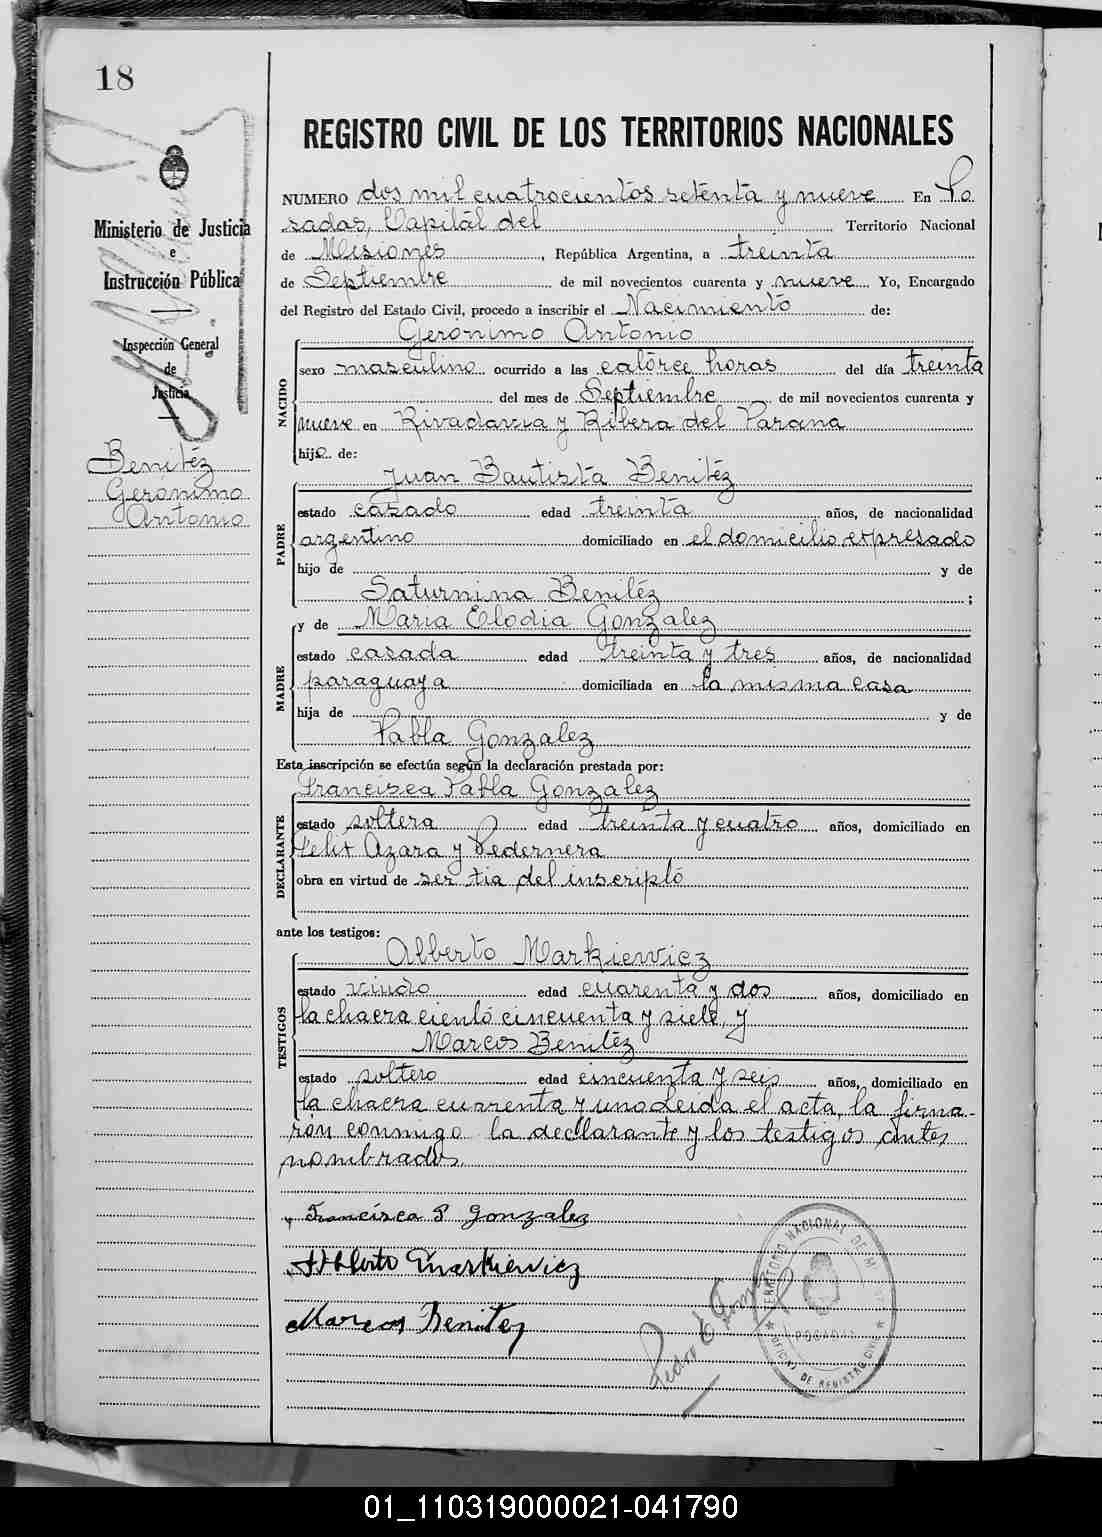 18
REGISTRO CIVIL DE LOS TERRITORIOS NACIONALES
Ministerio de Justicia
e
Instrucción Pública
Inspección General
de
Justicia
Benitéz
Gerónimo
Antonio
NUMERO dos mil cuatrocientos setenta y nueve En Po
sadas, Capitál del Territorio Nacional
de Misiones, República Argentina, a treinta
de Septiembre de mil novecientos cuarenta y nueve Yo, Encargado
del Registro del Estado Civil, procedo a inscribir el Nacimiento de:
Gerónimo Antonio
NACIDO
sexo masculino ocurrido a las catórce horas del día treinta
del mes de Septiembre de mil novecientos cuarenta y
nueve en Rivadavia y Ribera del Parana
hijo de:
Juan Bautista Benitéz
PADRE
estado casado edad treinta años, de nacionalidad
argentino domiciliado en el domicilio expresado
hijo de y de
Saturnina Benitéz ;
y de Maria Elodia Gonzalez
MADRE
estado casada edad treinta y tres años, de nacionalidad
paraguaya domiciliada en la misma casa
hija de y de
Pabla Gonzalez
Esta inscripción se efectúa según la declaración prestada por:
Francisca Pabla Gonzalez
DECLARANTE
estado soltera edad treinta y cuatro años, domiciliado en
Felix Azara y Pedernera
obra en virtud de ser tia del inscripto
ante los testigos:
Alberto Markievicz
TESTIGOS
estado viudo edad cuarenta y dos años, domiciliado en
la chacra ciento cincuenta y siete, y
Marcos Benitéz
estado soltero edad cincuenta y seis años, domiciliado en
la chacra cuarenta y uno Leida el acta, la firma-
rón conmigo la declarante y los testigos antes
nombrados.
Francisca P Gonzalez
Alberto Markievicz
Marcos Benitez
Pedro
TERRITORIO NACIONAL DE
POSADAS
OFICINA DE REGISTRO CIVIL
01_110319000021-041790